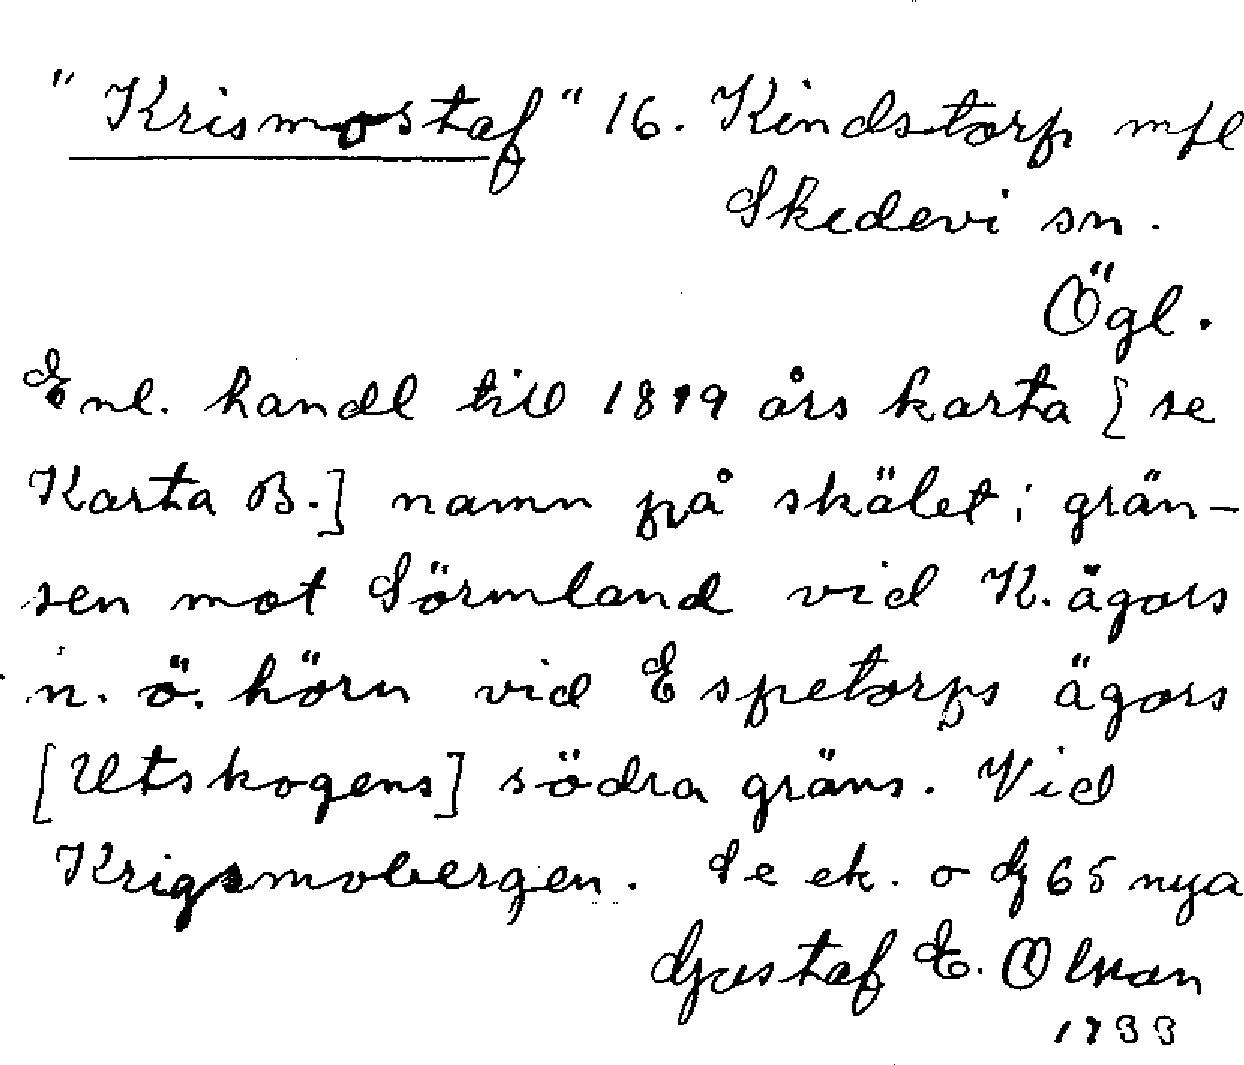 "Krismostaf" 16. Kindstorp mfl
Skedevi sn.
Ögl.
Enl. handl till 1819 års karta [se
Karta B.] namn på skälet i grän-
sen mot Sörmland vid K. ägors
n. ö. hörn vid Espetorps ägors
[Utskogens] södra gräns. Vid
Krigsmobergen. Se ek. o G 65 nya
Gustaf E. Olson
1933